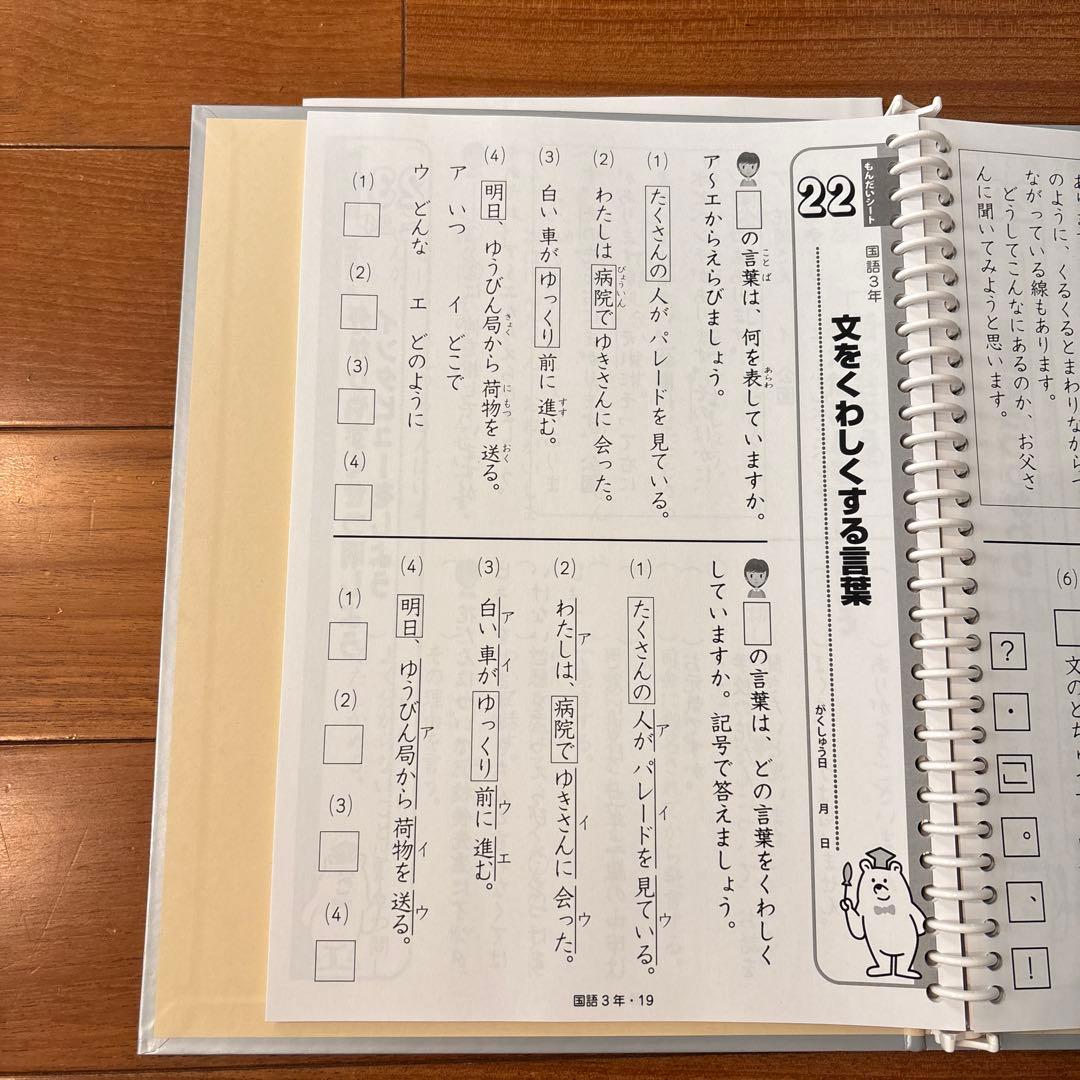 あ
のように、くるくるとまわりながらつ
ながっている線もあります。
どうしてこんなにあるのか、お父さ
んに聞いてみようと思います。
(6)
文のとち
？
・
」
。
、
！
もんだいシート
22
国語3年
文をくわしくする言葉
がくしゅう日 月 日
□の言葉は、何を表していますか。
ことば
あらわ
ア～エからえらびましょう。
(1) たくさんの人がパレードを見ている。
(2) わたしは病院でゆきさんに会った。
びょういん
(3) 白い車がゆっくり前に進む。
すす
(4) 明日、ゆうびん局から荷物を送る。
きょく
にもつ
おく
ア いつ イ どこで
ウ どんな エ どのように
(1)
(2)
(3)
(4)
□の言葉は、どの言葉をくわしく
していますか。記号で答えましょう。
(1) たくさんの人がパレードを見ている。
ア イ ウ
(2) わたしは、病院でゆきさんに会った。
ア イ ウ
(3) 白い車がゆっくり前に進む。
ア イ ウ エ
(4) 明日、ゆうびん局から荷物を送る。
ア イ ウ
(1)
(2)
(3)
(4)
国語3年・19